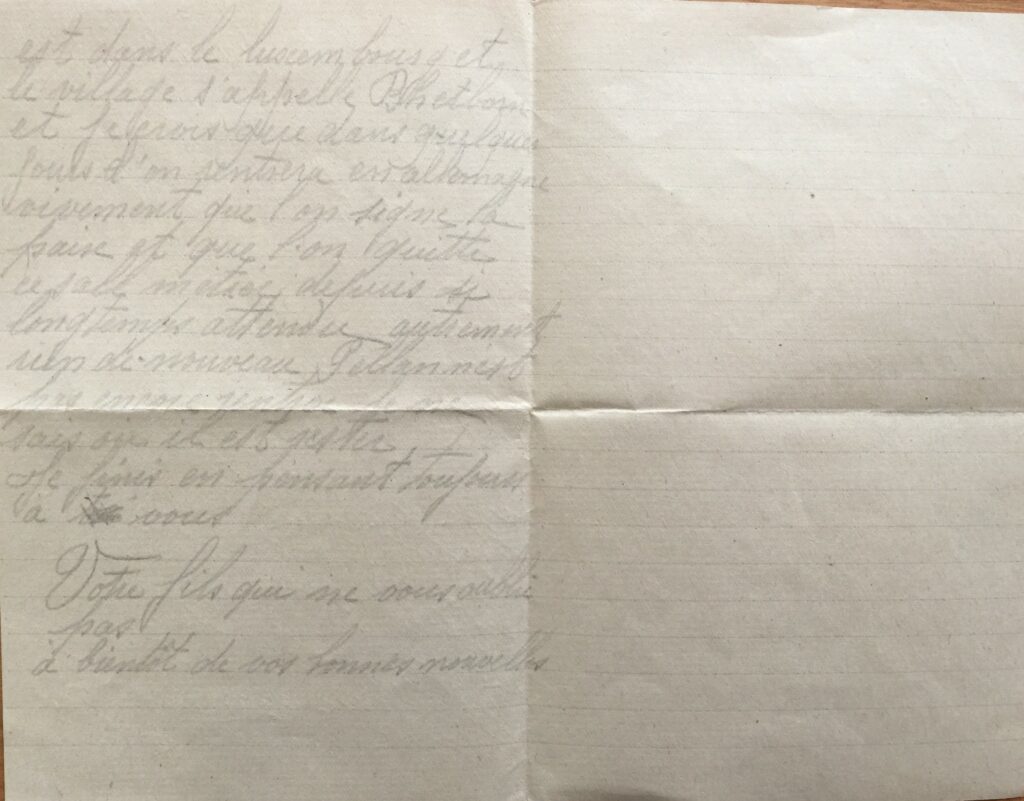 est dans le luxembourg et
le village s'appelle
et je crois que dans quelques
jours l'on rentrera en allemagne
vivement que l'on signe la
paix et que l'on quitte
ce sale métier depuis si
longtemps attendu autrement
rien de nouveau n'est
pas encore rentré je ne
sais où il est rester
Je finis en pensant toujours
à vous
Votre fils qui ne vous oublie
pas
à bientôt de vos bonnes nouvelles